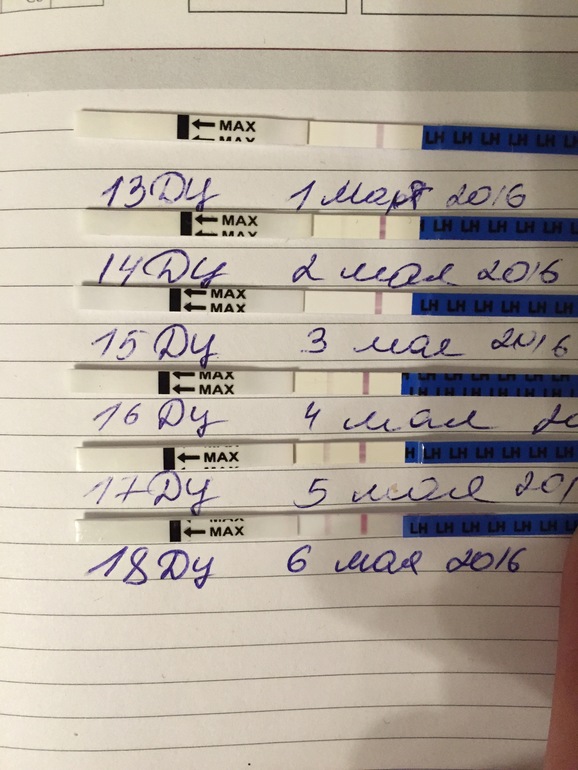 ← MAX
← MAX
LH LH LH LH LH LH
13 ДЦ 1 март 2016
← MAX
← MAX
LH LH LH LH LH LH
14 ДЦ 2 мая 2016
← MAX
← MAX
LH LH LH LH LH LH
15 ДЦ 3 мая 2016
← MAX
← MAX
LH LH LH LH LH LH
16 ДЦ 4 мая 20
← MAX
LH LH LH LH LH LH
17 ДЦ 5 мая 201
← MAX
LH LH LH LH LH LH
18 ДЦ 6 мая 2016